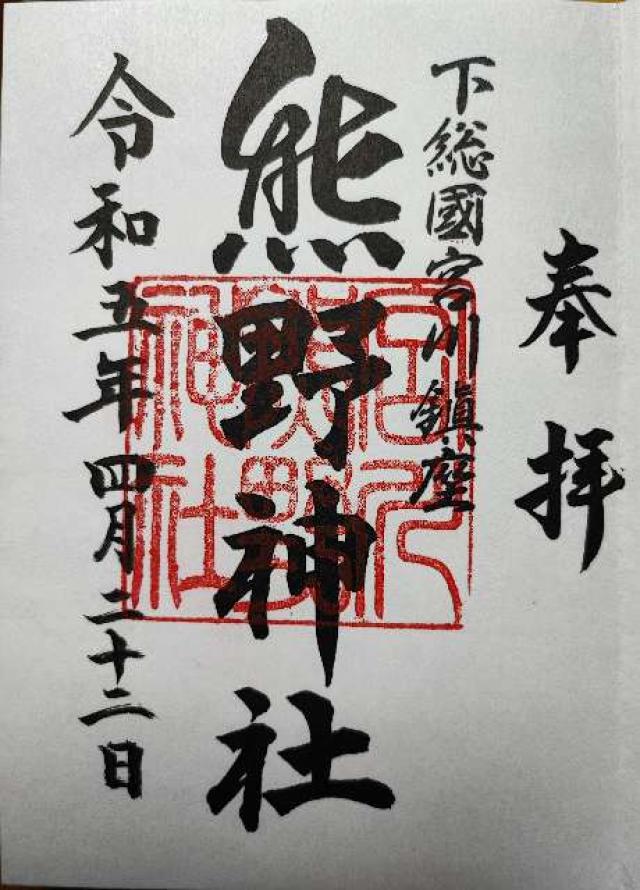 奉拝
下総國宮川鎮座
熊野神社
令和五年四月二十二日
宮川
熊野
神社